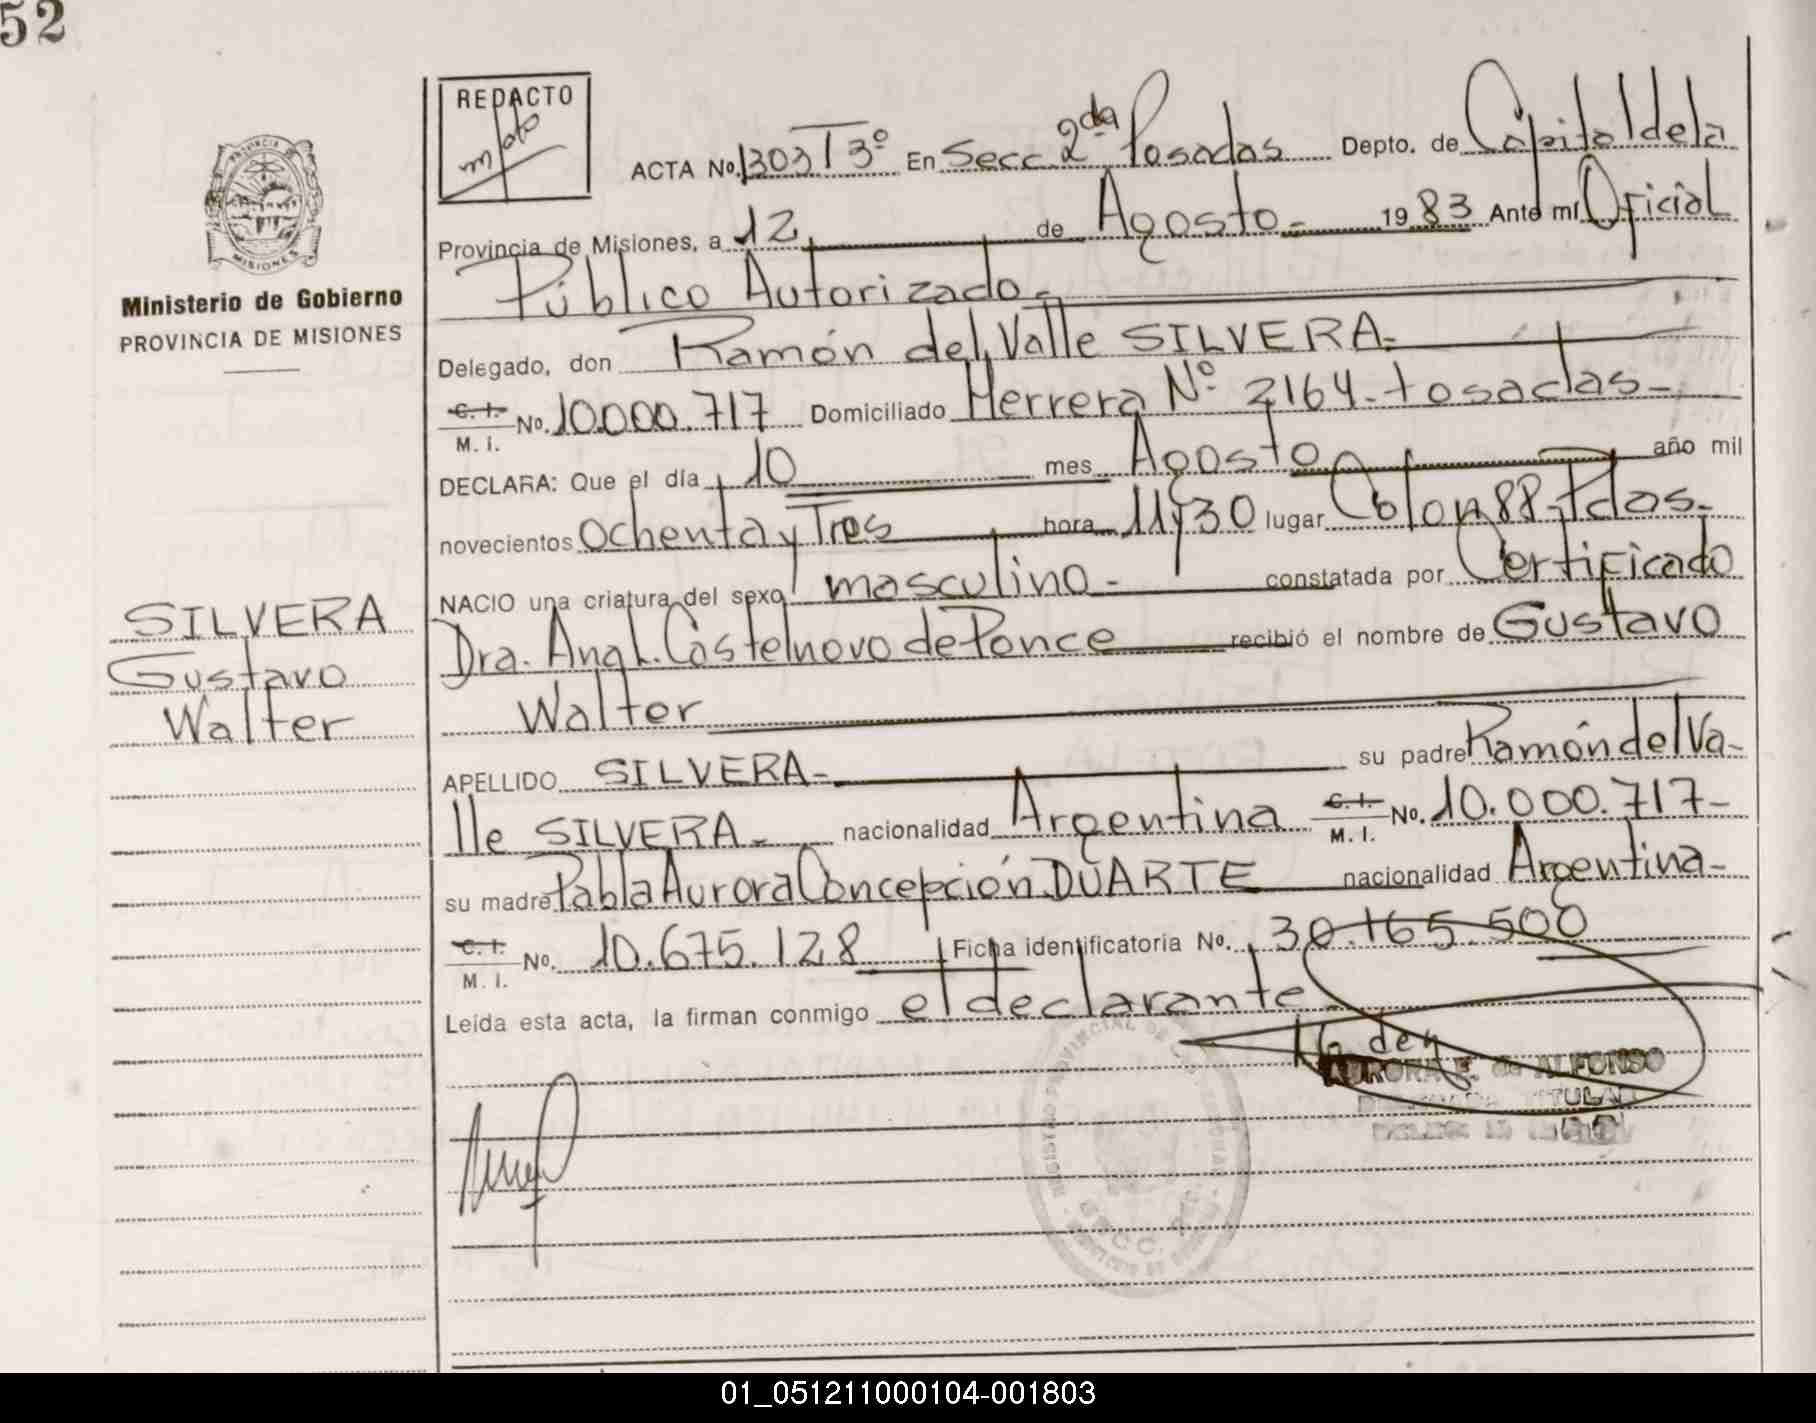 52
REDACTO
ACTA No. 1303 T 3º En Secc. 2da Posadas Depto. de Capital de la
Provincia de Misiones, a 12 de Agosto.- 1983 Ante mí Oficial
Público Autorizado.-
Delegado, don Ramón del Valle SILVERA.-
C. I. M. I. No. 10.000.717 Domiciliado Herrera Nº 2164.- Posadas-
DECLARA: Que el día 10 mes Agosto año mil
novecientos Ochenta y Tres hora 11y30 lugar Colon 88-Pdas.-
NACIO una criatura del sexo masculino - constatada por Certificado
Dra. Ang. L. Castelnovo de Ponce recibió el nombre de Gustavo
Walter
APELLIDO SILVERA- su padre Ramón del Va-
lle SILVERA.- nacionalidad Argentina C. I. M. I. No. 10.000.717-
su madre Pabla Aurora Concepción DUARTE nacionalidad Argentina-
C. I. M. I. No. 10.675.128 Ficha identificatoria No. 30.165.500
Leída esta acta, la firman conmigo el declarante
AURORA E. de ALFONSO
TITULAR
PROVINCIA DE MISIONES
Ministerio de Gobierno
PROVINCIA DE MISIONES
SILVERA
Gustavo
Walter
01_051211000104-001803